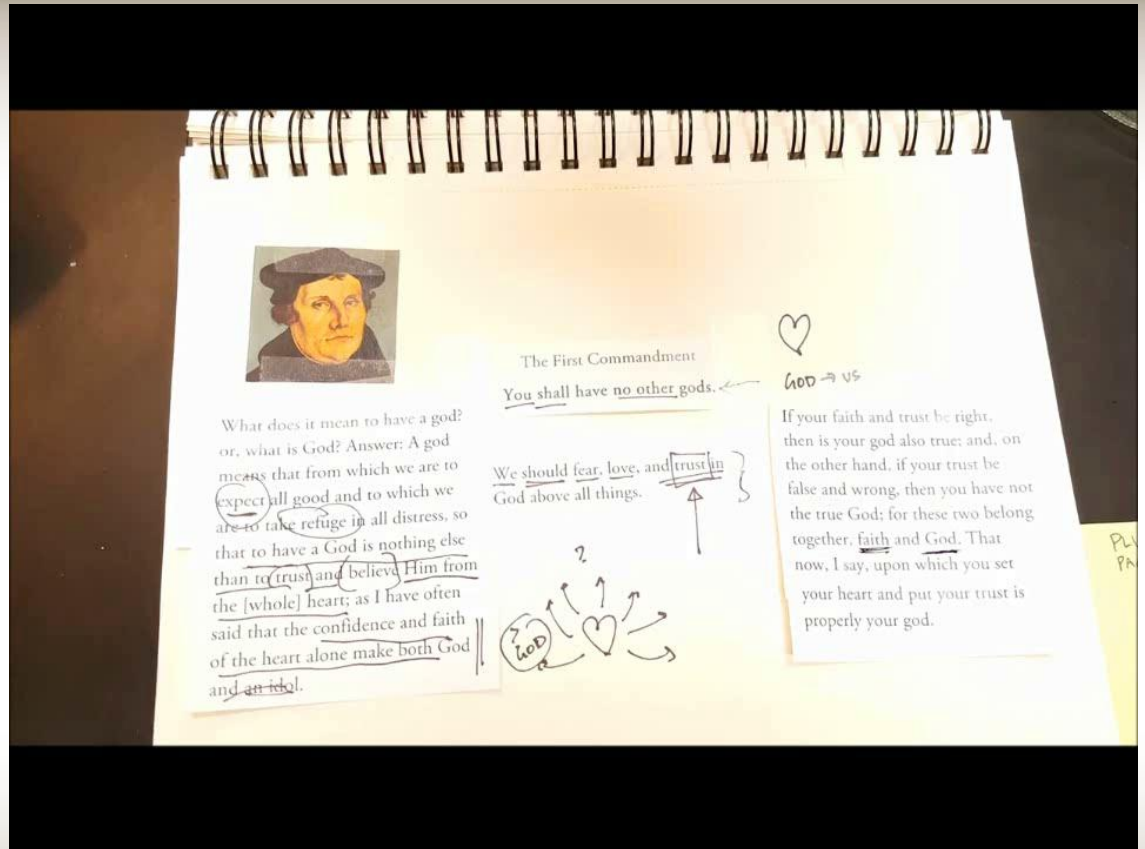 What does it mean to have a god?
or, what is God? Answer: A god
means that from which we are to
expect all good and to which we
are to take refuge in all distress, so
that to have a God is nothing else
than to trust and believe Him from
the [whole] heart; as I have often
said that the confidence and faith
of the heart alone make both God
and an idol.
The First Commandment
You shall have no other gods.
We should fear, love, and trust in
God above all things.
?
?
GOD
GOD → US
If your faith and trust be right,
then is your god also true; and, on
the other hand, if your trust be
false and wrong, then you have not
the true God; for these two belong
together, faith and God. That
now, I say, upon which you set
your heart and put your trust is
properly your god.